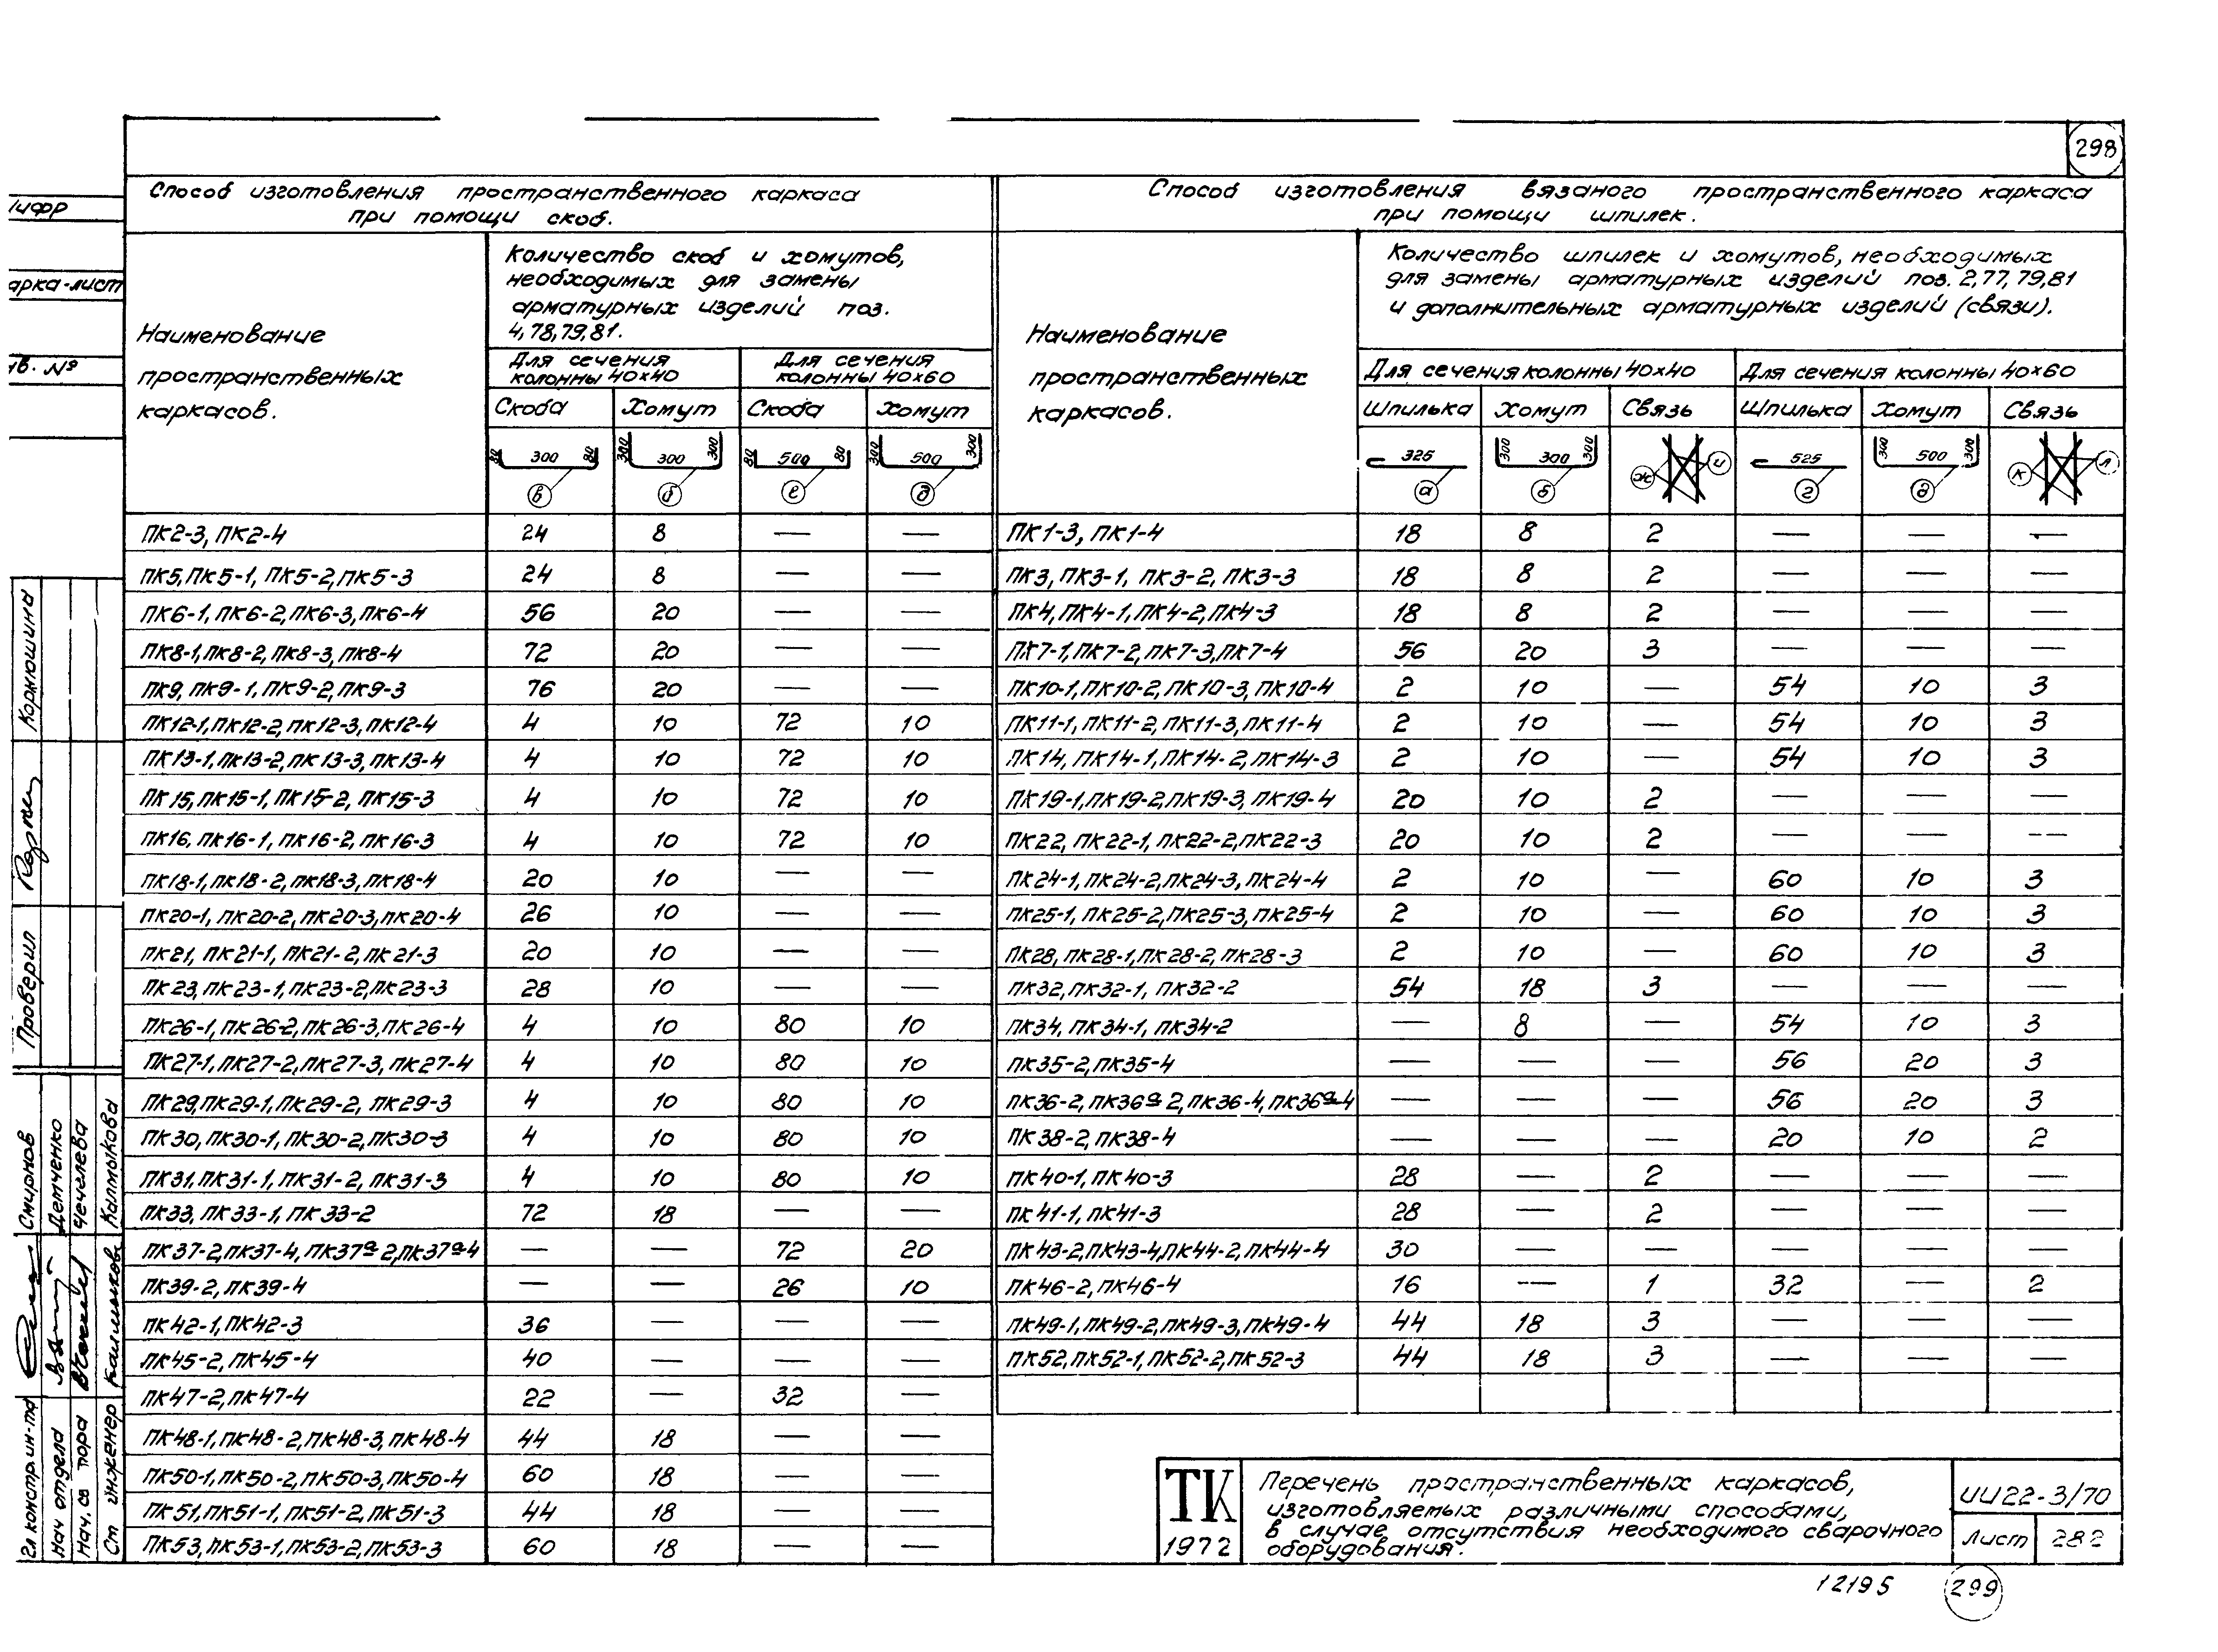 298
Способ изготовления пространственного каркаса
при помощи скоб.
Наименование
пространственных
каркасов.
Количество скоб и хомутов,
необходимых для замены
арматурных изделий поз.
4,78,79,81.
Для сечения колонны 40×40
Для сечения колонны 40×60
Скоба Хомут Скоба Хомут
80 300 80 300 300 300 80 500 80 300 500 300
в б е д
ПК2-3, ПК2-4 24 8 — —
ПК5, ПК5-1, ПК5-2, ПК5-3 24 8 — —
ПК6-1, ПК6-2, ПК6-3, ПК6-4 56 20 — —
ПК8-1, ПК8-2, ПК8-3, ПК8-4 72 20 — —
ПК9, ПК9-1, ПК9-2, ПК9-3 76 20 — —
ПК12-1, ПК12-2, ПК12-3, ПК12-4 4 10 72 10
ПК13-1, ПК13-2, ПК13-3, ПК13-4 4 10 72 10
ПК15, ПК15-1, ПК15-2, ПК15-3 4 10 72 10
ПК16, ПК16-1, ПК16-2, ПК16-3 4 10 72 10
ПК18-1, ПК18-2, ПК18-3, ПК18-4 20 10 — —
ПК20-1, ПК20-2, ПК20-3, ПК20-4 26 10 — —
ПК21, ПК21-1, ПК21-2, ПК21-3 20 10 — —
ПК23, ПК23-1, ПК23-2, ПК23-3 28 10 — —
ПК26-1, ПК26-2, ПК26-3, ПК26-4 4 10 80 10
ПК27-1, ПК27-2, ПК27-3, ПК27-4 4 10 80 10
ПК29, ПК29-1, ПК29-2, ПК29-3 4 10 80 10
ПК30, ПК30-1, ПК30-2, ПК30-3 4 10 80 10
ПК31, ПК31-1, ПК31-2, ПК31-3 4 10 80 10
ПК33, ПК33-1, ПК33-2 72 18 — —
ПК37-2, ПК37-4, ПК37а-2, ПК37а-4 — — 72 20
ПК39-2, ПК39-4 — — 26 10
ПК42-1, ПК42-3 36 — — —
ПК45-2, ПК45-4 40 — — —
ПК47-2, ПК47-4 22 — 32 —
ПК48-1, ПК48-2, ПК48-3, ПК48-4 44 18 — —
ПК50-1, ПК50-2, ПК50-3, ПК50-4 60 18 — —
ПК51, ПК51-1, ПК51-2, ПК51-3 44 18 — —
ПК53, ПК53-1, ПК53-2, ПК53-3 60 18 — —
Способ изготовления вязаного пространственного каркаса
при помощи шпилек.
Наименование
пространственных
каркасов.
Количество шпилек и хомутов, необходимых
для замены арматурных изделий поз. 2,77,79,81
и дополнительных арматурных изделий (связи).
Для сечения колонны 40×40 Для сечения колонны 40×60
Шпилька Хомут Связь Шпилька Хомут Связь
325 300 300 300 525 300 500 300
а б ж и г д к л
ПК1-3, ПК1-4 18 8 2 — — —
ПК3, ПК3-1, ПК3-2, ПК3-3 18 8 2 — — —
ПК4, ПК4-1, ПК4-2, ПК4-3 18 8 2 — — —
ПК7-1, ПК7-2, ПК7-3, ПК7-4 56 20 3 — — —
ПК10-1, ПК10-2, ПК10-3, ПК10-4 2 10 — 54 10 3
ПК11-1, ПК11-2, ПК11-3, ПК11-4 2 10 — 54 10 3
ПК14, ПК14-1, ПК14-2, ПК14-3 2 10 — 54 10 3
ПК19-1, ПК19-2, ПК19-3, ПК19-4 20 10 2 — — —
ПК22, ПК22-1, ПК22-2, ПК22-3 20 10 2 — — —
ПК24-1, ПК24-2, ПК24-3, ПК24-4 2 10 — 60 10 3
ПК25-1, ПК25-2, ПК25-3, ПК25-4 2 10 — 60 10 3
ПК28, ПК28-1, ПК28-2, ПК28-3 2 10 — 60 10 3
ПК32, ПК32-1, ПК32-2 54 18 3 — — —
ПК34, ПК34-1, ПК34-2 — 8 — 54 10 3
ПК35-2, ПК35-4 — — — 56 20 3
ПК36-2, ПК36а-2, ПК36-4, ПК36а-4 — — — 56 20 3
ПК38-2, ПК38-4 — — — 20 10 2
ПК40-1, ПК40-3 28 — 2 — — —
ПК41-1, ПК41-3 28 — 2 — — —
ПК43-2, ПК43-4, ПК44-2, ПК44-4 30 — — — — —
ПК46-2, ПК46-4 16 — 1 32 — 2
ПК49-1, ПК49-2, ПК49-3, ПК49-4 44 18 3 — — —
ПК52, ПК52-1, ПК52-2, ПК52-3 44 18 3 — — —
ТК
1972
Перечень пространственных каркасов,
изготовляемых различными способами,
в случае отсутствия необходимого сварочного
оборудования.
ИИ22-3/70
Лист 282
12195 299
Шифр
арка-лист
нв. №
Проверил Корнюшина
Гл констр. ин-та Смирнов
Нач отдела Демченко
Нач. св пора Чечелева
Ст инженер Калмыкова